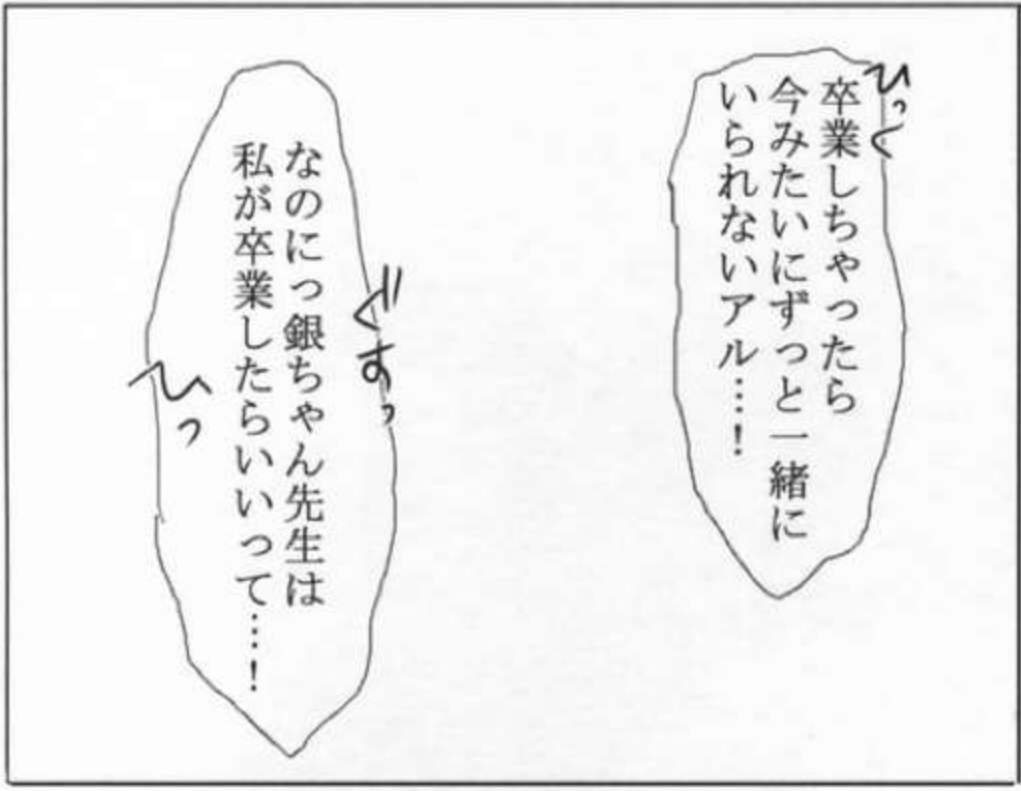 ひっく
卒業しちゃったら
今みたいにずっと一緒に
いられないアル…！
ぐすっ
なのにっ銀ちゃん先生は
私が卒業したらいいって…！
ひっ